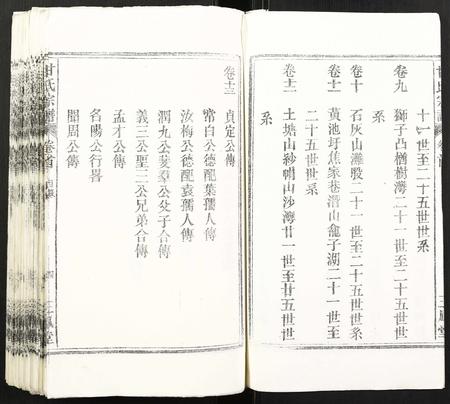 十一世至二十五世世系
卷九
獅子凹楢樹灣二十一世至二十五世世系
卷十
石灰山灘股二十一世至二十五世世系
卷十一
黃池圩焦家巷渭山龕子湖二十一世至
二十五世世系
卷十二
土塘山紗帽山沙灣廿一世至廿五世世
系
三鳳堂
甘氏宗譜
卷首
目錄
四
三鳳堂
卷十三
貞定公傳
常白公德配葉孺人傳
汝梅公德配袁孺人傳
潤九公斐羣公父子合傳
義三公聖三公兄弟合傳
孟才公傳
名暘公行畧
韶周公傳